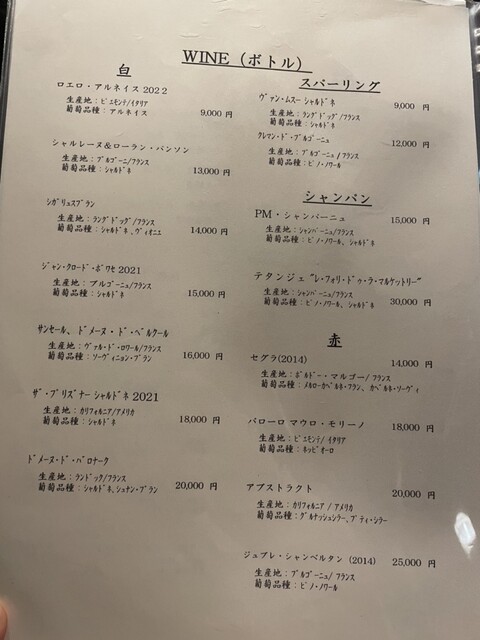 WINE (ボトル)
白
ロエロ・アルネイス 2022
生産地：ピエモンテ/イタリア
葡萄品種：アルネイス 9,000 円
シャルレーヌ&ローラン・パンソン
生産地：ブルゴーニュ/フランス
葡萄品種：シャルドネ 13,000 円
シガリュスブラン
生産地：ラングドッグ/フランス
葡萄品種：シャルドネ、ヴィオニエ 14,000 円
ジャン・クロード・ボワセ 2021
生産地：ブルゴーニュ/フランス
葡萄品種：シャルドネ 15,000 円
サンセール、ドメーヌ・ド・ベルクール
生産地：ヴァル・ド・ロワール/フランス
葡萄品種：ソーヴィニョン・ブラン 16,000 円
ザ・プリズナー シャルドネ 2021
生産地：カリフォルニア/アメリカ
葡萄品種：シャルドネ 18,000 円
ドメーヌ・ド・バロナーク
生産地：ランドッグ/フランス
葡萄品種：シャルドネ、シュナン・ブラン 20,000 円
スパーリング
ヴァン・ムスー シャルドネ 9,000 円
生産地：ラングドッグ/フランス
葡萄品種：シャルドネ
クレマン・ド・ブルゴーニュ 12,000 円
生産地：ブルゴーニュ/フランス
葡萄品種：ピノ・ノワール
シャンパン
PM・シャンパーニュ 15,000 円
生産地：シャンパーニュ/フランス
葡萄品種：ピノ・ノワール、シャルドネ
テタンジェ "レ・フォリ・ドゥ・ラ・マルケットリー"
生産地：シャンパーニュ/フランス
葡萄品種：ピノ・ノワール、シャルドネ 30,000 円
赤
セグラ(2014) 14,000 円
生産地：ボルドー・マルゴー/フランス
葡萄品種：メルローカベルネ・フラン、カベルネ・ソーヴィ
バローロ マウロ・モリーノ 18,000 円
生産地：ピエモンテ/イタリア
葡萄品種：ネッビオーロ
アブストラクト 20,000 円
生産地：カリフォルニア/アメリカ
葡萄品種：グルナッシュシラー、プティ・シラー
ジュブレ・シャンベルタン (2014) 25,000 円
生産地：ブルゴーニュ/フランス
葡萄品種：ピノ・ノワール